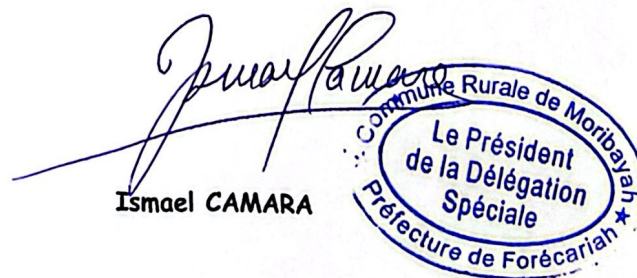 Ismael Camara
Commune Rurale de Moribayah
Le Président
de la Délégation
Spéciale
Préfecture de Forécariah ★
Ismael CAMARA